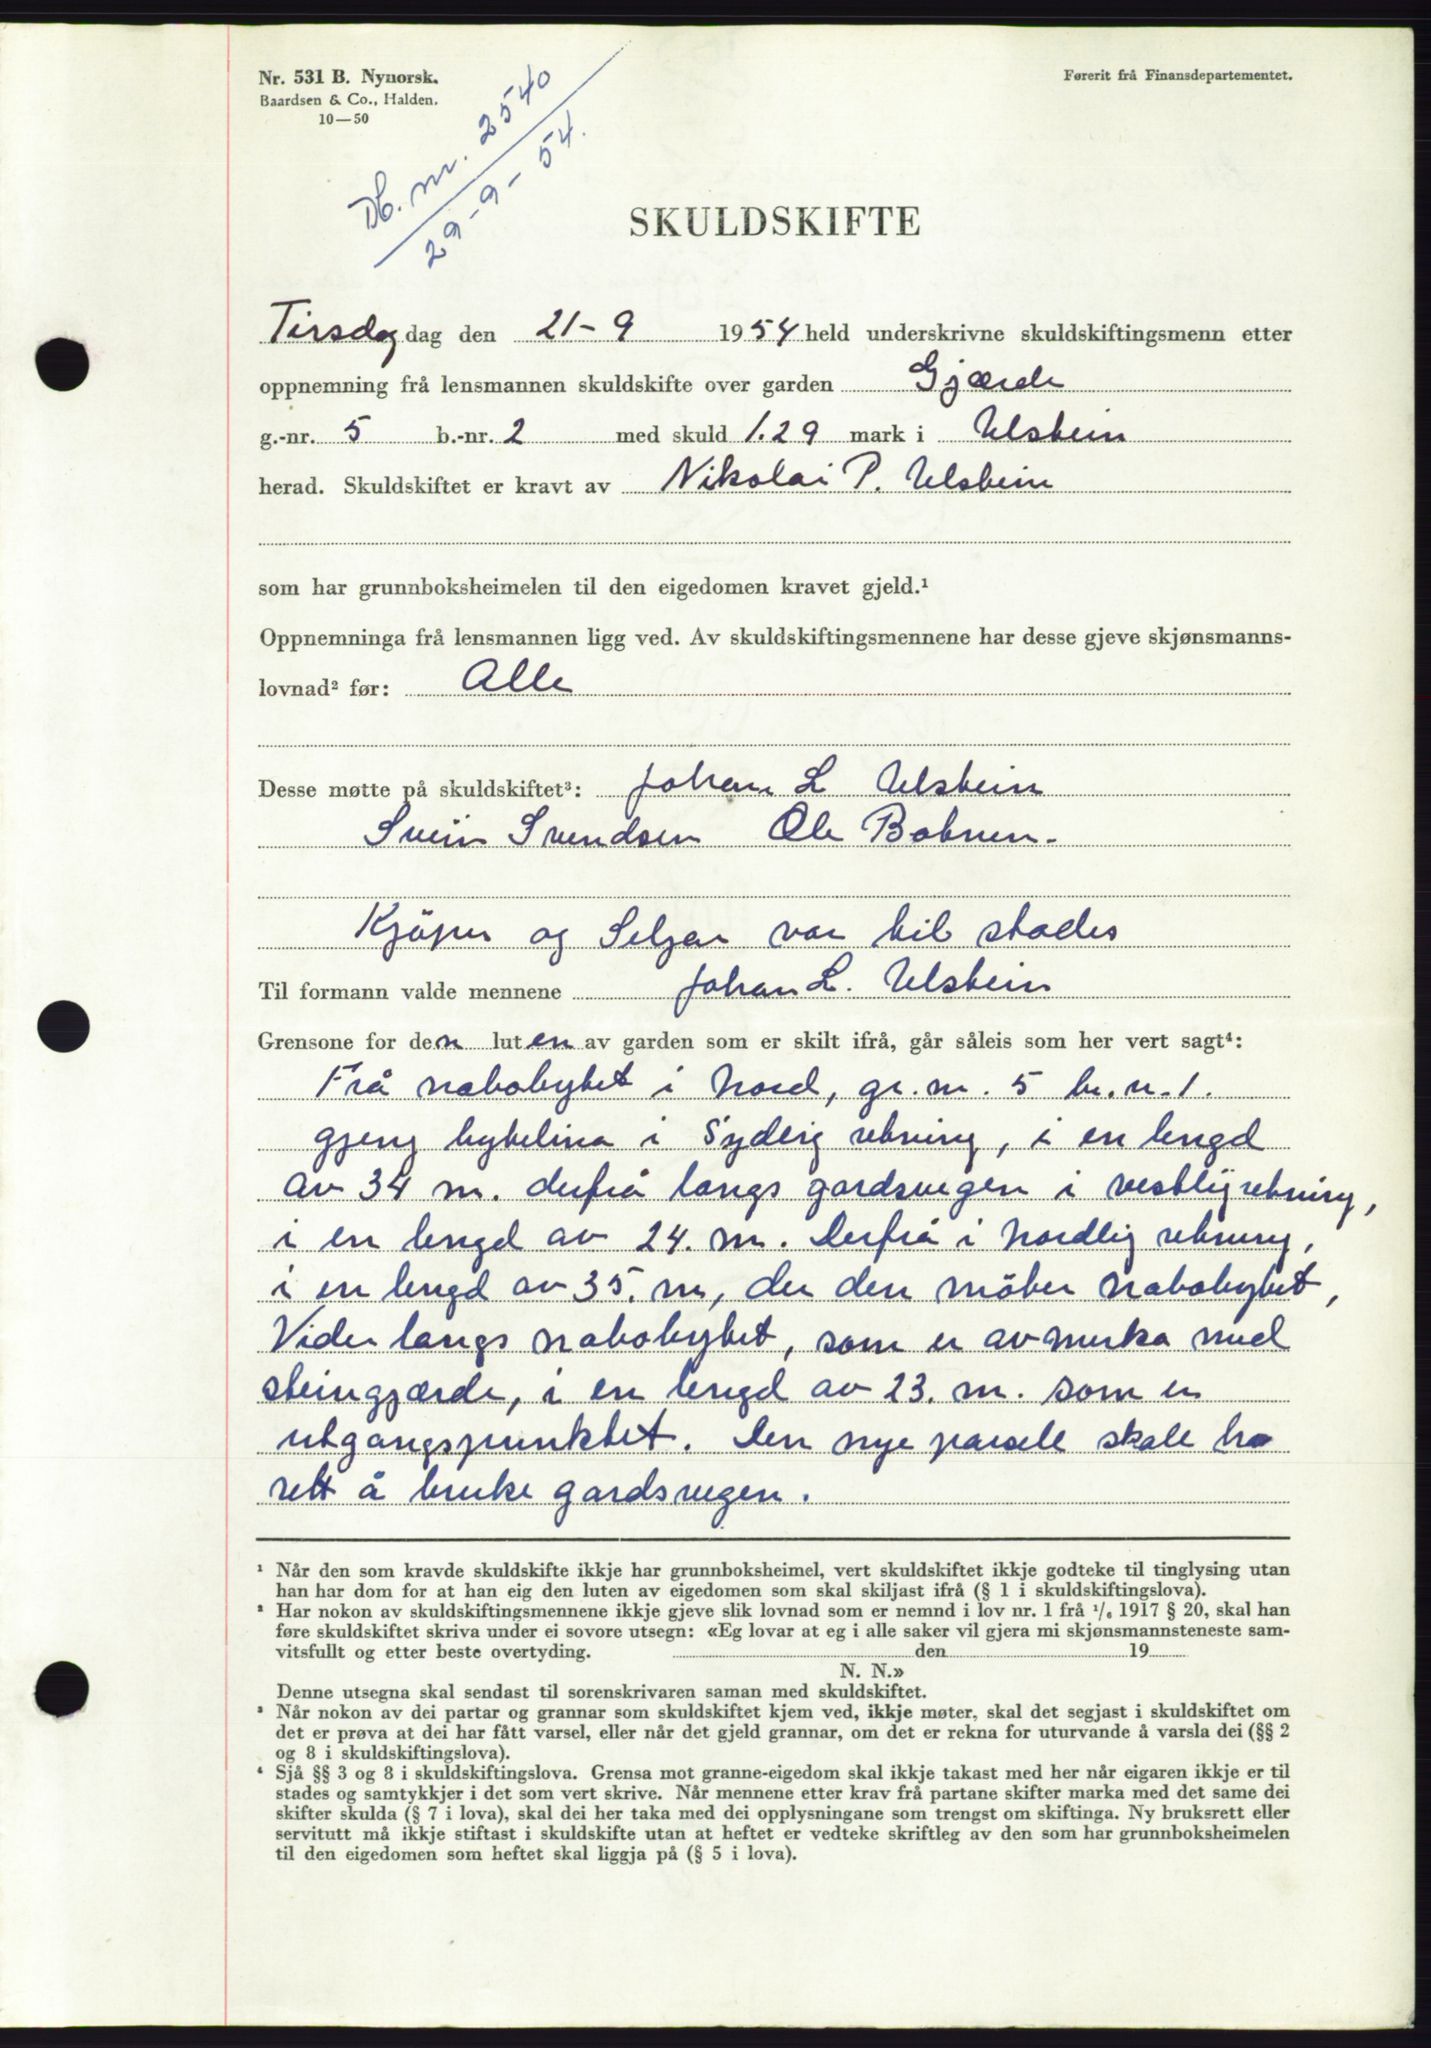 Nr. 531 B. Nynorsk.
Baardsen & Co., Halden.
10—50
Førerit frå Finansdepartementet.
Db. nr. 2540
29-9-54.
SKULDSKIFTE
Tirsdag dag den 21-9 1954 held underskrivne skuldskiftingsmenn etter
oppnemning frå lensmannen skuldskifte over garden Gjærde
g.-nr. 5 b.-nr. 2 med skuld 1.29 mark i Ulstein
herad. Skuldskiftet er kravt av Nikolai P. Ulstein
som har grunnboksheimelen til den eigedomen kravet gjeld.¹
Oppnemninga frå lensmannen ligg ved. Av skuldskiftingsmennene har desse gjeve skjønsmanns-
lovnad² før: Alle
Desse møtte på skuldskiftet³: Johan L Ulstein
Svein Svendsen Ole
Kjöper og Seljar var til stades
Til formann valde mennene Johan L. Ulstein
Grensone for den luten av garden som er skilt ifrå, går såleis som her vert sagt⁴:
Frå nabobytet i Nord, gr.nr. 5 br.n.1.
gjeng bytelina i Syderig retning, i en lengd
av 34 m. derfrå langs gardsvegen i vestlig retning,
i en lengd av 24. m. Derfrå i Nordlig retning,
i en lengd av 35. m, der den möter nabobytet,
Vider langs nabobytet, som er avmerka med
steingjærde, i en lengd av 23. m. som er
utgangspunktet. Den nye parsele skale ha
rett å bruke gardsvegen.
¹ Når den som kravde skuldskifte ikkje har grunnboksheimel, vert skuldskiftet ikkje godteke til tinglysing utan
han har dom for at han eig den luten av eigedomen som skal skiljast ifrå (§ 1 i skuldskiftingslova).
² Har nokon av skuldskiftingsmennene ikkje gjeve slik lovnad som er nemnd i lov nr. 1 frå ¹/₆ 1917 § 20, skal han
føre skuldskiftet skriva under ei sovore utsegn: «Eg lovar at eg i alle saker vil gjera mi skjønsmannsteneste sam-
vitsfullt og etter beste overtyding. den 19
N. N.»
Denne utsegna skal sendast til sorenskrivaren saman med skuldskiftet.
³ Når nokon av dei partar og grannar som skuldskiftet kjem ved, ikkje møter, skal det segjast i skuldskiftet om
det er prøva at dei har fått varsel, eller når det gjeld grannar, om det er rekna for uturvande å varsla dei (§§ 2
og 8 i skuldskiftingslova).
⁴ Sjå §§ 3 og 8 i skuldskiftingslova. Grensa mot granne-eigedom skal ikkje takast med her når eigaren ikkje er til
stades og samtykkjer i det som vert skrive. Når mennene etter krav frå partane skifter marka med det same dei
skifter skulda (§ 7 i lova), skal dei her taka med dei opplysningane som trengst om skiftinga. Ny bruksrett eller
servitutt må ikkje stiftast i skuldskifte utan at heftet er vedteke skriftleg av den som har grunnboksheimelen
til den eigedomen som heftet skal liggja på (§ 5 i lova).